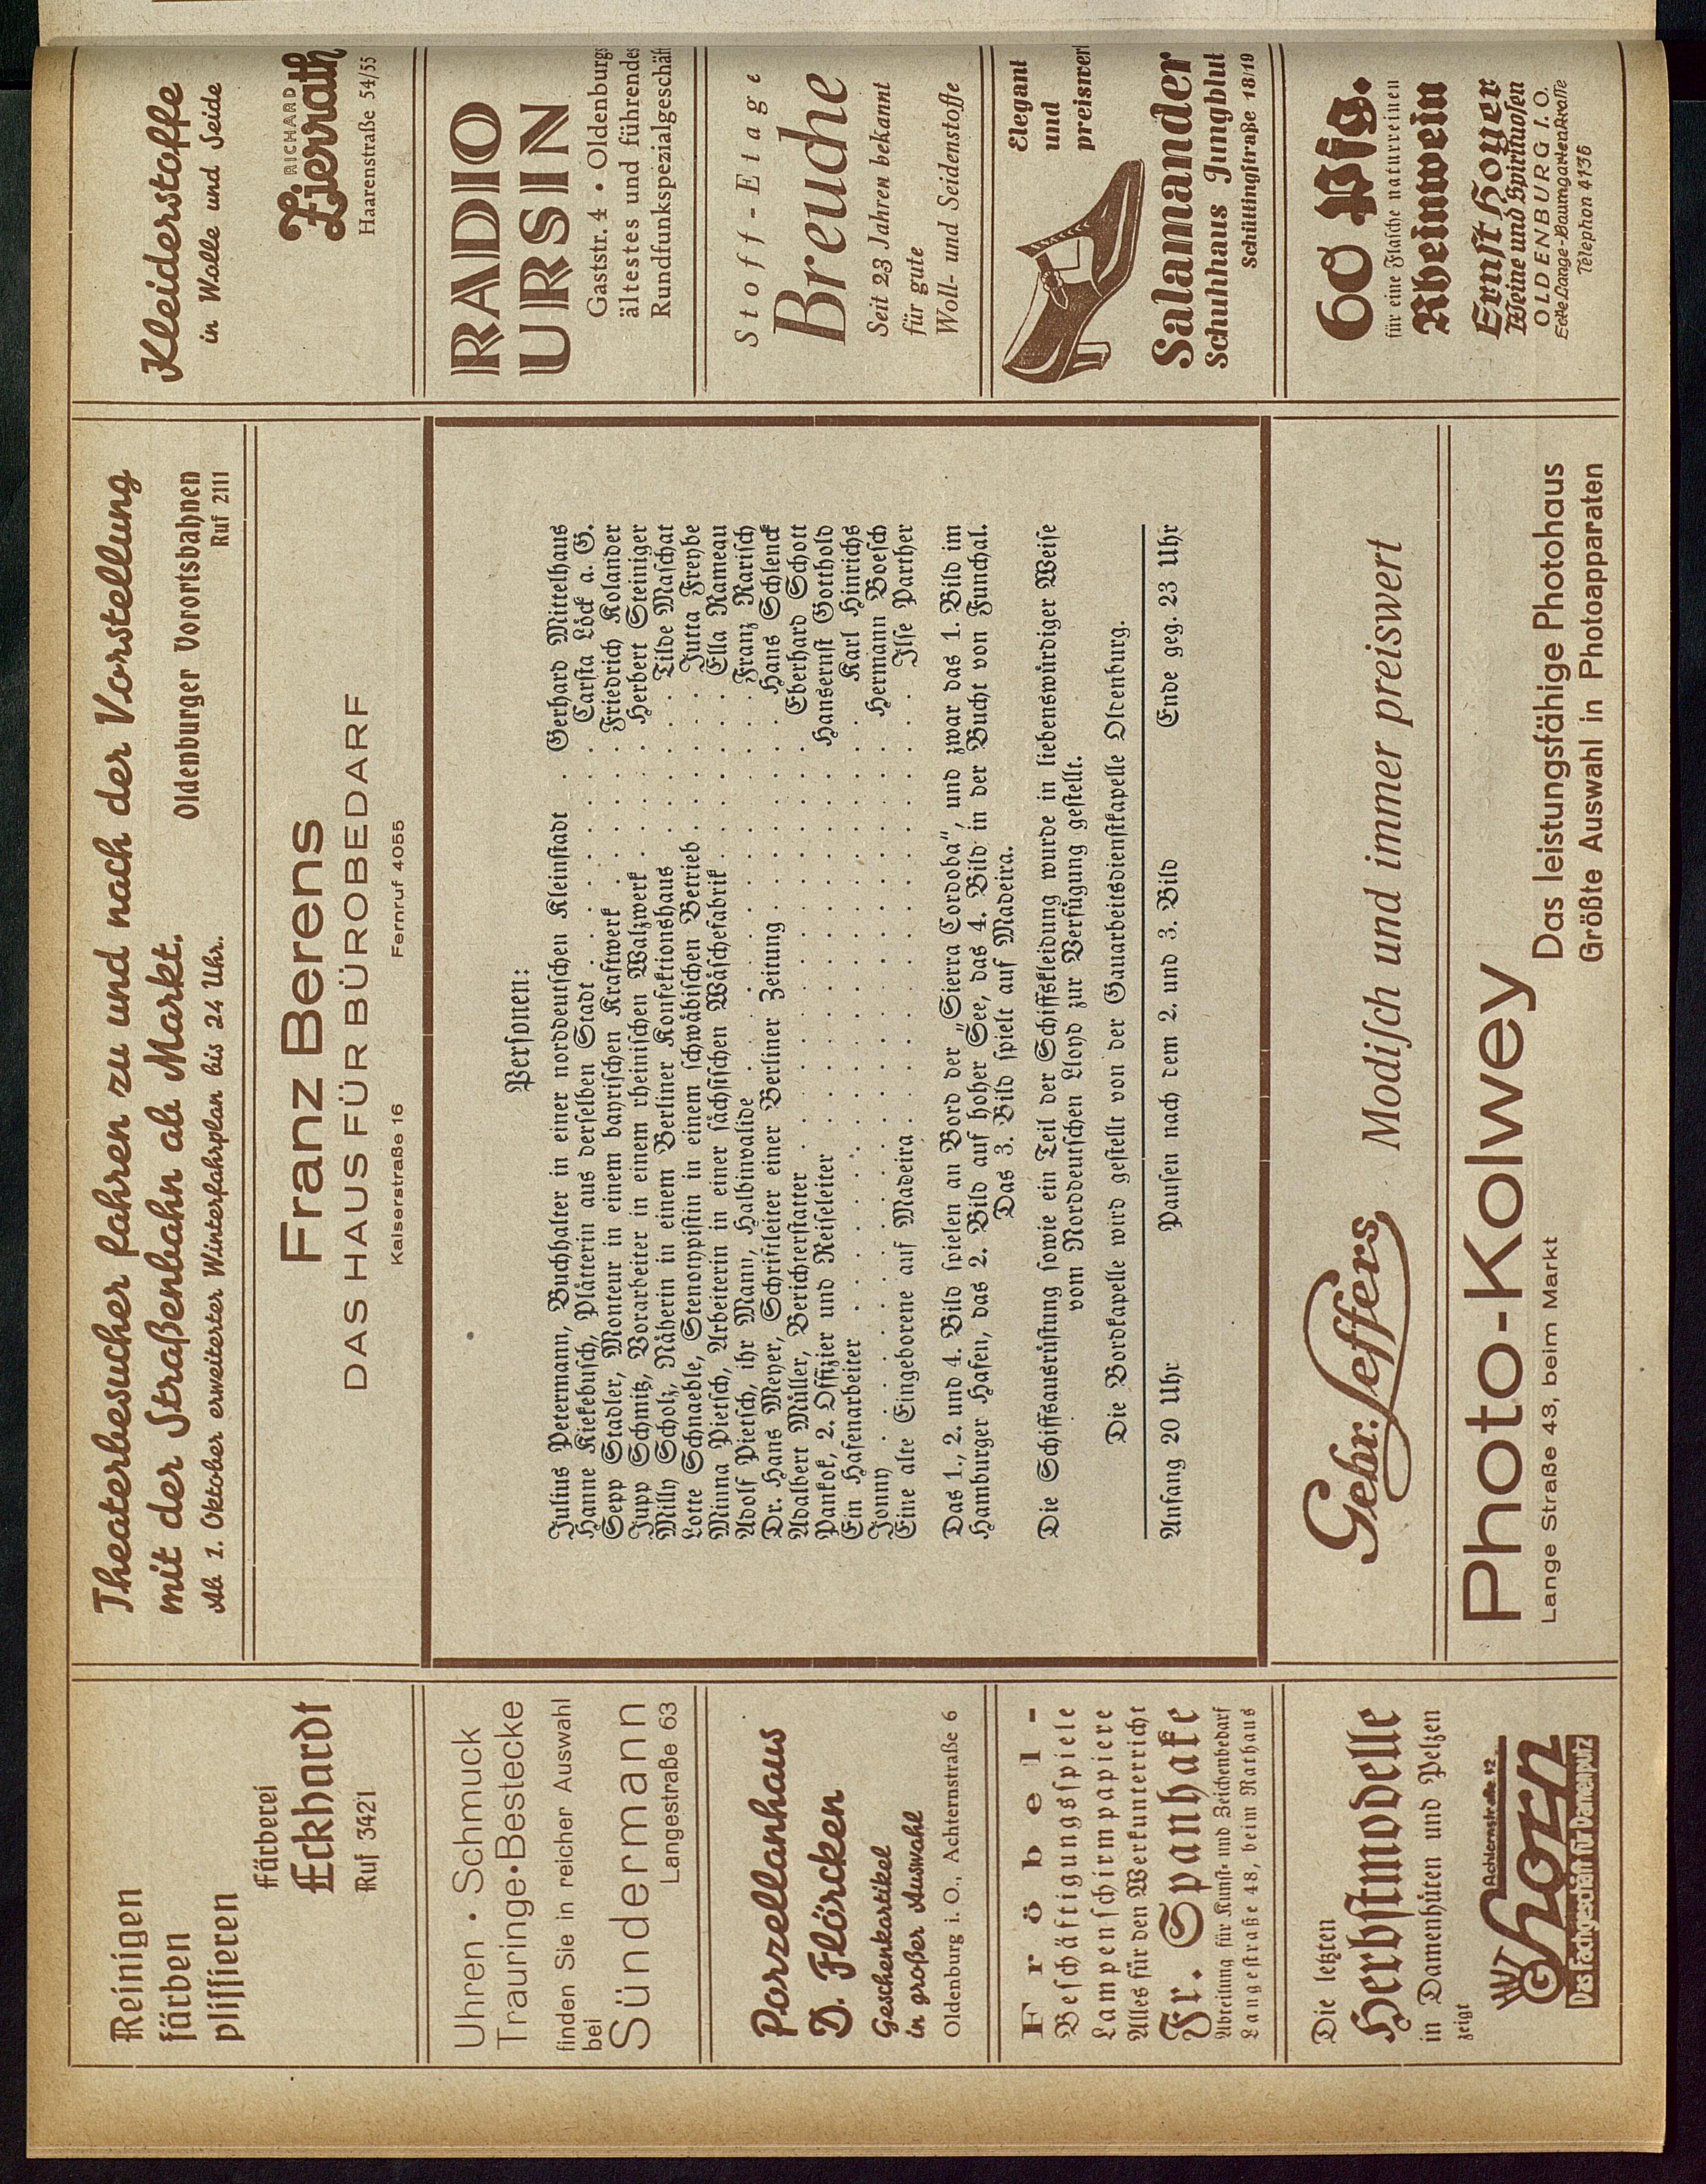 Reinigen
färben
plissieren
Färberei
Eckhardt
Ruf 3421
Theaterbesucher fahren zu und nach der Vorstellung
mit der Straßenbahn ab Markt.
Oldenburger Vorortsbahnen
Ab 1. Oktober erweiterter Winterfahrplan bis 24 Uhr.
Ruf 2111
Franz Berens
DAS HAUS FÜR BÜROBEDARF
Kaiserstraße 16 Fernruf 4055
Kleiderstoffe
in Wolle und Seide
RICHARD
Zierrath
Haarenstraße 54/55
Uhren • Schmuck
Trauringe•Bestecke
finden Sie in reicher Auswahl
bei
Sündermann
Langestraße 63
Porzellanhaus
D. Flörcken
Geschenkartikel
in großer Auswahl
Oldenburg i. O., Achternstraße 6
Fröbel-
Beschäftigungsspiele
Lampenschirmpapiere
Alles für den Werkunterricht
Fr. Spanhake
Abteilung für Kunst- und Zeichenbedarf
Langestraße 48, beim Rathaus
Die letzten
Herbstmodelle
in Damenhüten und Pelzen
zeigt
Achternstraße 42
Ghorn
Das Fachgeschäft für Damenputz
Personen:
Julius Petermann, Buchhalter in einer norddeutschen Kleinstadt . Gerhard Mittelhaus
Hanne Kiekebusch, Plätterin aus derselben Stadt . . . . . . . . Carsta Löck a. G.
Sepp Stadler, Monteur in einem bayrischen Kraftwerk . . . . . Friedrich Kolander
Jupp Schmitz, Vorarbeiter in einem rheinischen Walzwerk . . . . Herbert Steiniger
Milly Scholz, Näherin in einem Berliner Konfektionshaus . . . . . Tilde Maschat
Lotte Schnaeble, Stenotypistin in einem schwäbischen Betrieb . . . . . Jutta Freybe
Minna Pietsch, Arbeiterin in einer sächsischen Wäschefabrik . . . . . Ella Rameau
Adolf Pietsch, ihr Mann, Halbinvalide . . . . . . . . . . Franz Rarisch
Dr. Hans Meyer, Schriftleiter einer Berliner Zeitung . . . . . . Hans Schlenck
Adalbert Müller, Berichterstatter . . . . . . . . . . Eberhard Schott
Pankok, 2. Offizier und Reiseleiter . . . . . . . . . Hansernst Gotthold
Ein Hafenarbeiter . . . . . . . . . . . . Karl Hinrichs
Jonny . . . . . . . . . . . . . Hermann Boesch
Eine alte Eingeborene auf Madeira . . . . . . . . . . Ilse Parther
Das 1., 2. und 4. Bild spielen an Bord der „Sierra Cordoba“, und zwar das 1. Bild im
Hamburger Hafen, das 2. Bild auf hoher See, das 4. Bild in der Bucht von Funchal.
Das 3. Bild spielt auf Madeira.
Die Schiffsausrüstung sowie ein Teil der Schiffskleidung wurde in liebenswürdiger Weise
vom Norddeutschen Lloyd zur Verfügung gestellt.
Die Bordkapelle wird gestellt von der Gauarbeitsdienstkapelle Oldenburg.
Anfang 20 Uhr Pausen nach dem 2. und 3. Bild Ende geg. 23 Uhr
RADIO
URSIN
Gaststr. 4 • Oldenburgs
ältestes und führendes
Rundfunkspezialgeschäft
Stoff-Etage
Breuche
Seit 23 Jahren bekannt
für gute
Woll- und Seidenstoffe
Elegant
und
preiswert
Salamander
Schuhhaus Jungblut
Schüttingstraße 18/19
60 Pfg.
für eine Flasche naturreinen
Rheinwein
Ernst Hoyer
Weine und Spirituosen
OLDENBURG I. O.
Ecke Lange-Baumgartenstraße
Telephon 4136
Gebr. Leffers
Modisch und immer preiswert
Photo-Kolwey
Lange Straße 43, beim Markt
Das leistungsfähige Photohaus
Größte Auswahl in Photoapparaten